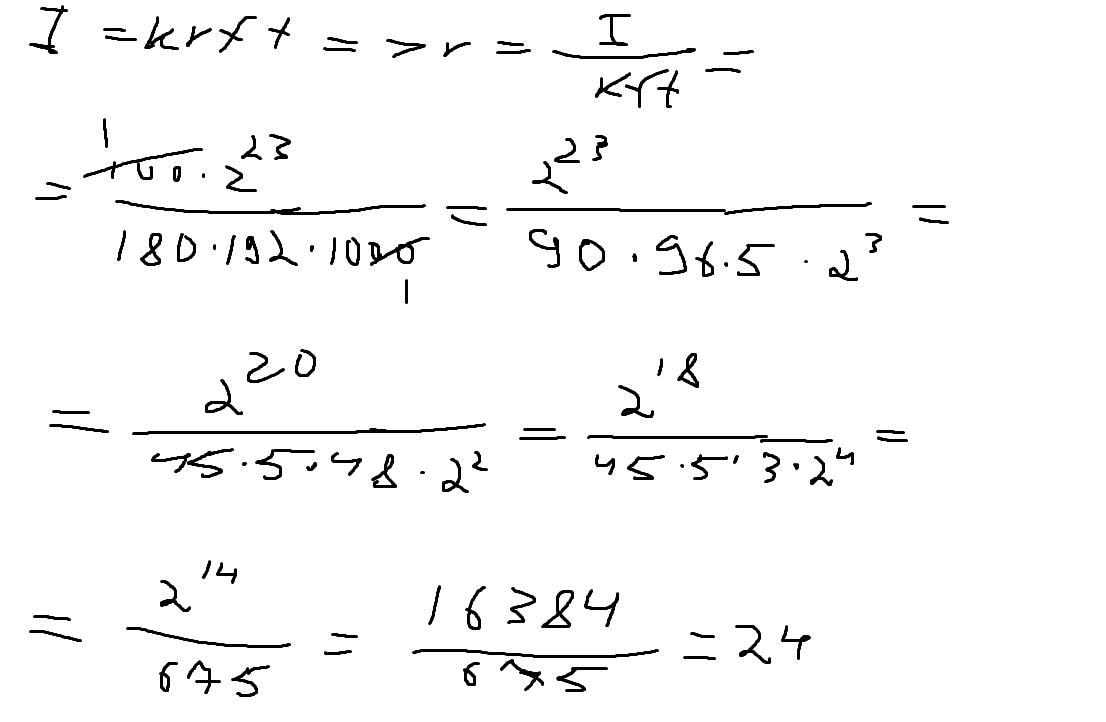 I = krft => r = I/kft =
= 100·2^23/180·192·1000 = 2^23/90·96·5·2^3 =
= 2^20/45·5·48·2^2 = 2^18/45·5·3·2^4 =
= 2^14/675 = 16384/675 = 24